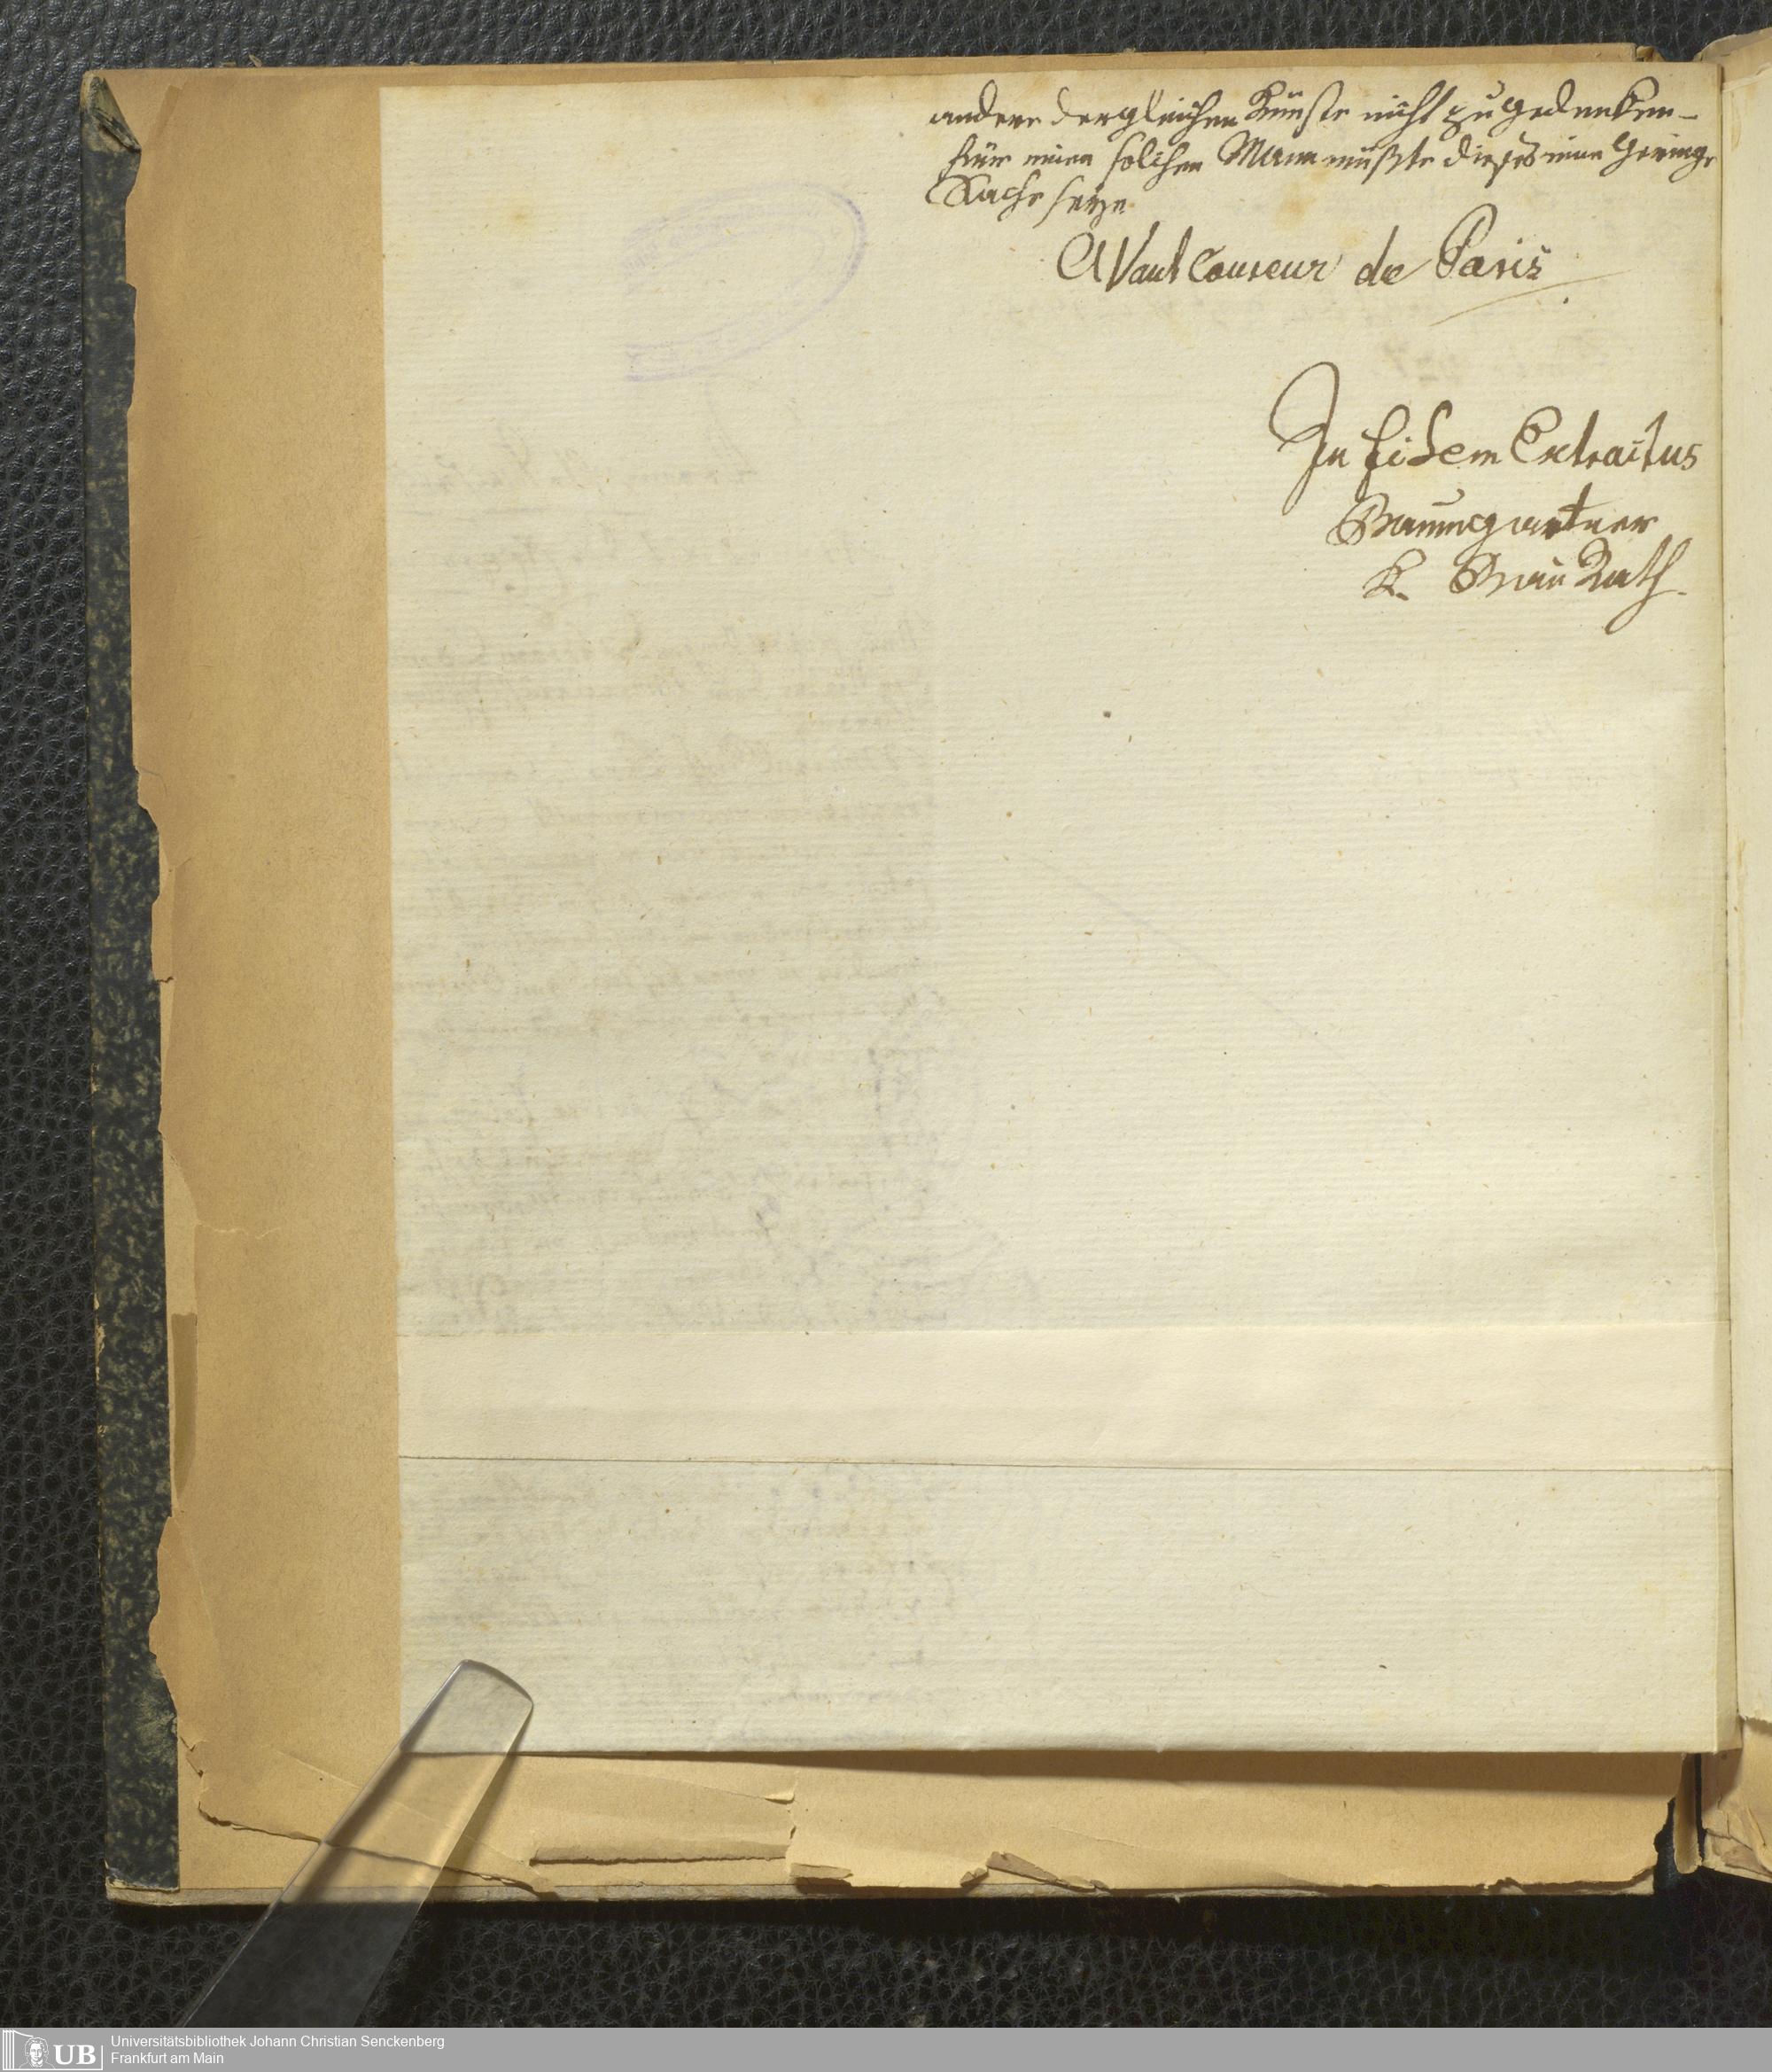 andere dergleichen Künste nicht zu gedenken –
für einen solchen Mann müßte dieses eine geringe
Sache seyn
AVant Coureur de Paris
In fidem Extractus
Baumgartner
K. Bau Rath.
UB
Universitätsbibliothek Johann Christian Senckenberg
Frankfurt am Main